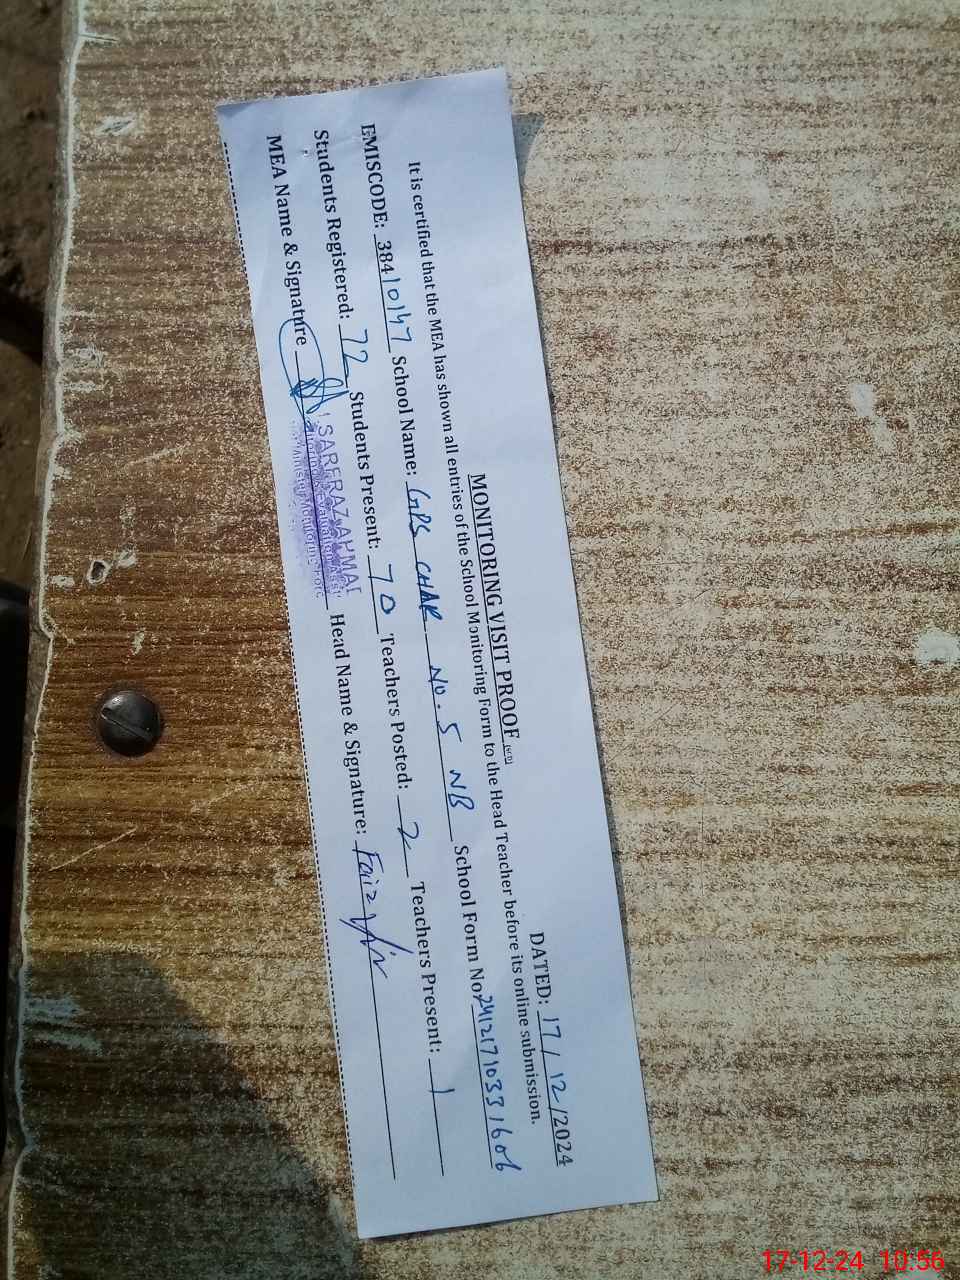 MONITORING VISIT PROOF
DATED: 17/12/2024
It is certified that the MEA has shown all entries of the School Monitoring Form to the Head Teacher before its online submission.
EMISCODE: 38410147 School Name: GPS CHAK No. 5 NB School Form No. 24121710331606
Students Registered: 72 Students Present: 70 Teachers Posted: 2 Teachers Present: 1
MEA Name & Signature Head Name & Signature: Faiz
SARFRAZ AHMAD
17-12-24 10:56